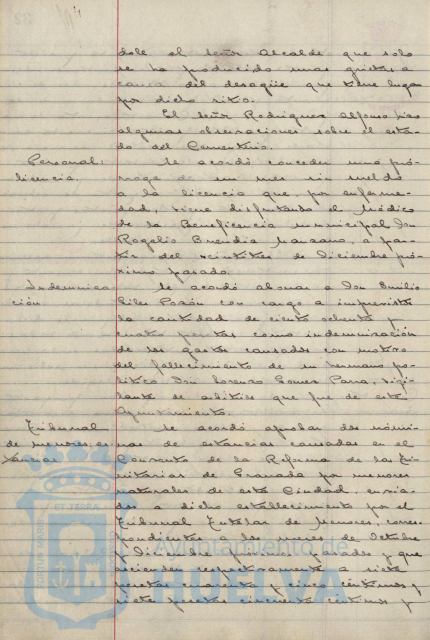 dole el señor Alcalde que solo
se ha producido unas grietas a
causa del desagüe que tiene lugar
por dicho sitio.
El señor Rodríguez Alfonso hizo
algunas observaciones sobre el esta-
do del Cementerio.
Personal: Se acordó conceder una pró-
licencia. rroga de un mes sin sueldo
a la licencia que, por enferme-
dad, viene disfrutando el Médico
de la Beneficencia municipal Don
Rogelio Buendía Manzano, a par-
tir del veintitres de Diciembre pró-
ximo pasado.
Indemniza- Se acordó abonar a Don Emilio
ción Giles Pazón con cargo a imprevistos
la cantidad de ciento ochenta y
cuatro pesetas como indemnización
de los gastos causados con motivo
del fallecimiento de su hermano po-
lítico Don Lorenzo Gomez Parra, vigi-
lante de arbitrios que fue de este
Ayuntamiento.
Tribunal Se acordó aprobar dos nómi-
de menores: es- nas de estancias causadas en el
tancias Convento de la Reforma de las Tri-
nitarias de Granada por menores
naturales de esta Ciudad, envia-
dos a dicho establecimiento por el
Tribunal Tutelar de Menores, corres-
pondientes a los meses de Octubre
y Diciembre próximos pasados y que
ascienden respectivamente a siete
pesetas cuarenta y cinco céntimos y
siete pesetas cincuenta céntimos y
PORTUS MARIS ET TERRAE CUSTODIA
Ayuntamiento de
HUELVA